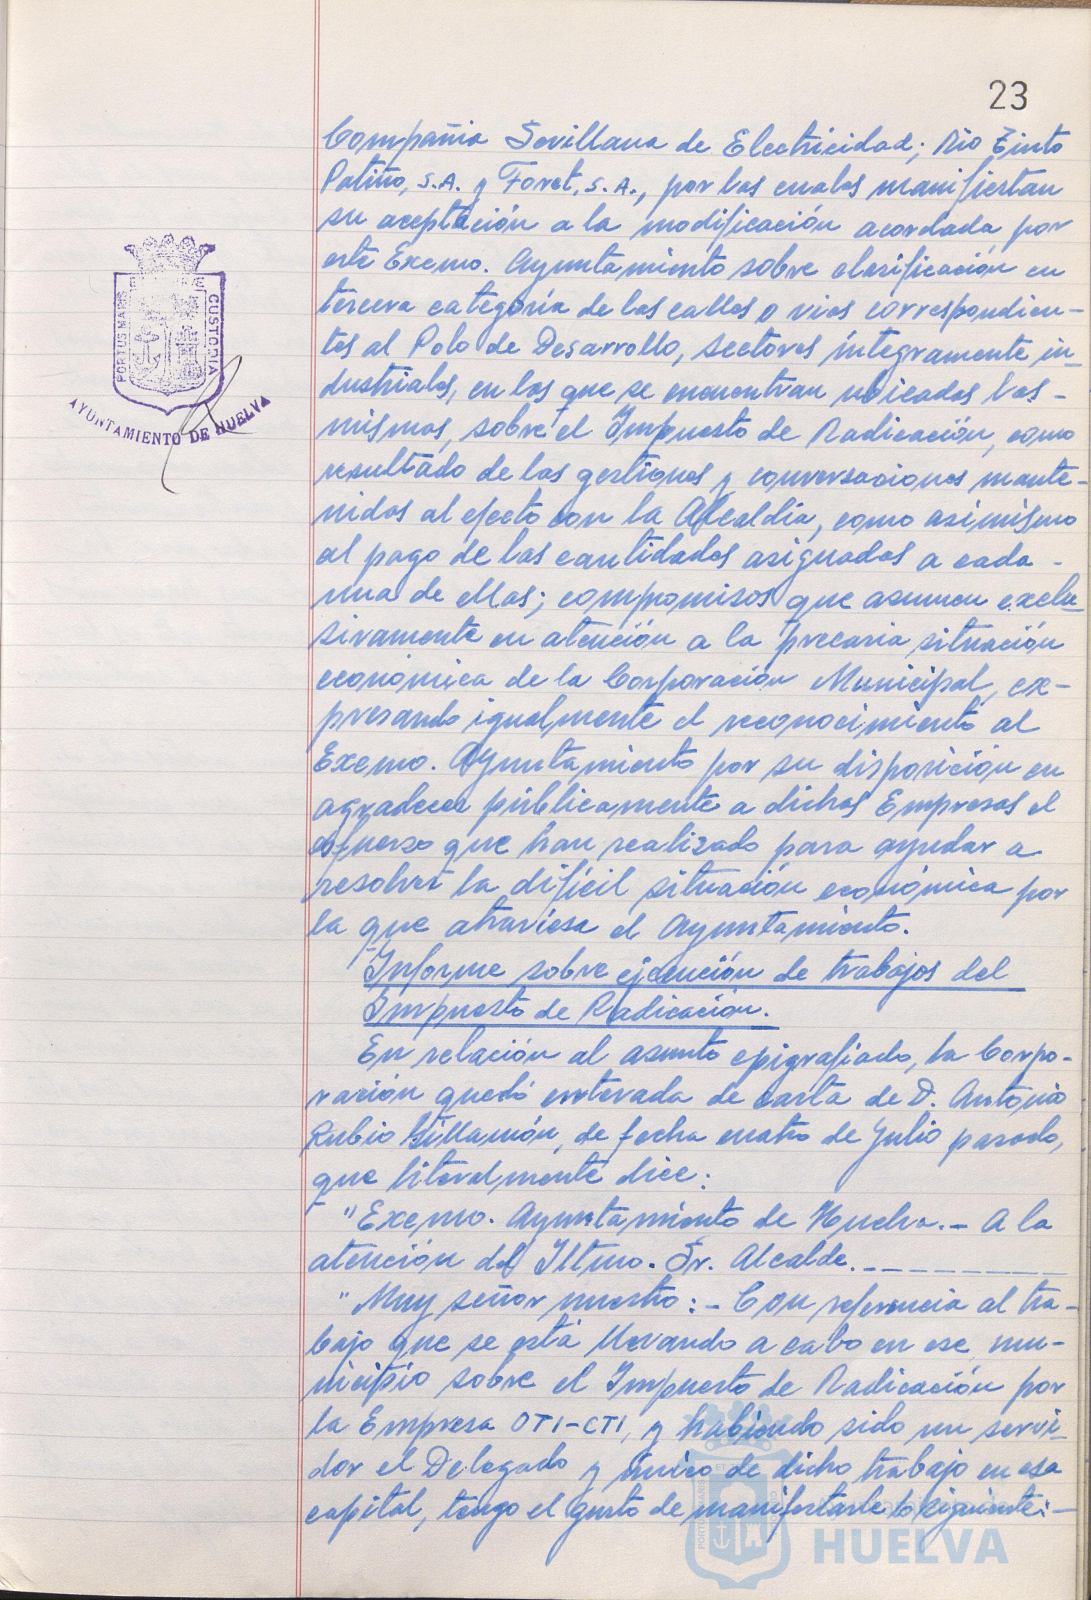 23
Compañia Sevillana de Electricidad; Rio Tinto
Patiño, S.A. y Foret, S.A., por las cuales manifiestan
su aceptación a la modificación acordada por
este Excmo. Ayuntamiento sobre clasificación en
tercera categoría de las calles o vias correspondien-
tes al Polo de Desarrollo, sectores íntegramente in-
dustriales, en los que se encuentran ubicadas las-
mismas, sobre el Impuesto de Radicación, como
resultado de las gestiones y conversaciones mante-
nidas al efecto con la Alcaldía, como asimismo
al pago de las cantidades asignadas a cada -
una de ellas; compromisos que asumen exclu-
sivamente en atención a la precaria situación
económica de la Corporación Municipal, ex-
presando igualmente el reconocimiento al
Excmo. Ayuntamiento por su disposición en
agradecer públicamente a dichas Empresas el
esfuerzo que han realizado para ayudar a
resolver la difícil situación económica por
la que atraviesa el Ayuntamiento.
Informe sobre ejecución de trabajos del
Impuesto de Radicación.
En relación al asunto epigrafiado, la Corpo-
ración quedó enterada de carta de D. Antonio
Rubio Villamón, de fecha cuatro de Julio pasado,
que literalmente dice:
"Excmo. Ayuntamiento de Huelva.- A la
atención del Iltmo. Sr. Alcalde.
"Muy señor nuestro:- Con referencia al tra-
bajo que se está llevando a cabo en ese mu-
nicipio sobre el Impuesto de Radicación por
la Empresa OTI-CTI, y habiendo sido un servi-
dor el Delegado y único de dicho trabajo en esa
capital, tengo el gusto de manifestarle lo siguiente:-
PORTUS MARIS
CUSTODIA
AYUNTAMIENTO DE HUELVA
HUELVA